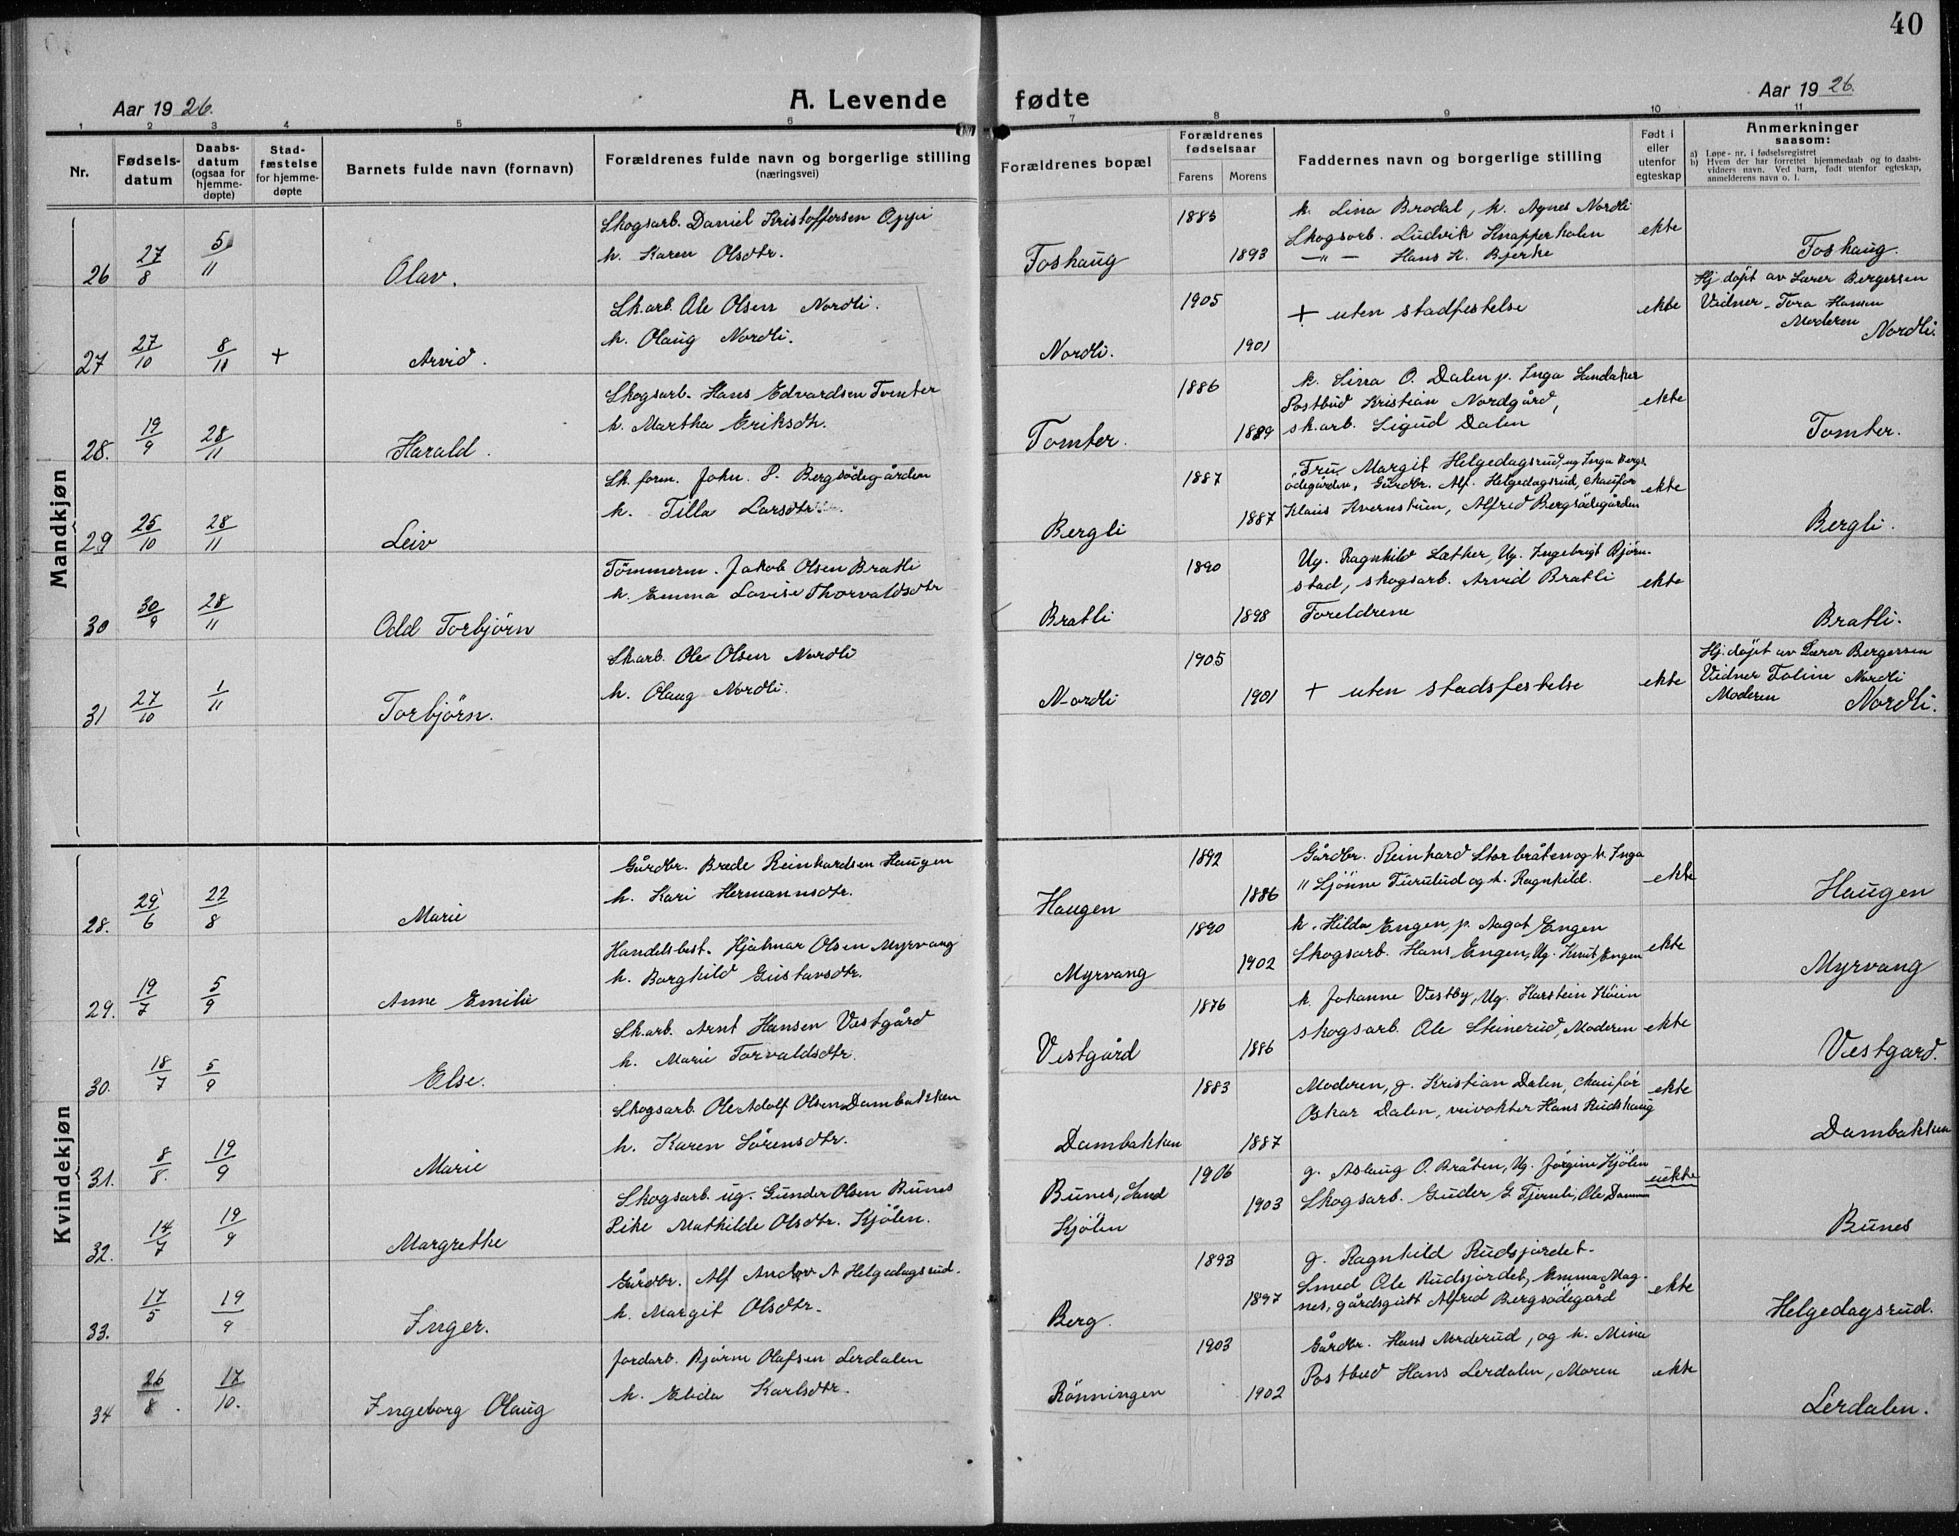 40
Aar 1926. A. Levende fødte Aar 1926.
1 2 3 4 5 6 7 8 9 10 11
Nr. Fødselsdatum Daabsdatum (ogsaa for hjemmedøpte) Stadfæstelse for hjemmedøpte Barnets fulde navn (fornavn) Forældrenes fulde navn og borgerlige stilling (næringsvei) Forældrenes bopæl Forældrenes fødselsaar Farens Morens Faddernes navn og borgerlige stilling Født i eller utenfor egteskap Anmerkninger saasom:
a) Løpe-nr. i fødselsregistret
b) Hvem der har forrettet hjemmedaab og to daabsvidners navn. Ved barn, født utenfor egteskap, anmelderens navn o. l.
Mandkjøn
26 27/8 5/11 Olav.
Skogsarb. Daniel Kristoffersen Oppi
h. Karen Olsdtr.
Foshaug 1885 1893
k. Lina Brodal, k. Agnes Nordli
Skogsarb. Ludvik Knapperholen
—"— Hans K. Bjerke
ekte Foshaug.
27 27/10 8/11 + Arvid.
Sk.arb. Ole Olsen Nordli.
h. Olaug Nordli.
Nordli. 1905 1901
+ uten stadfestelse
ekte
Hj. døpt av Lærer Bergersen
Vidner Tora Hansen
Moderen Nordli.
28. 19/9 28/11 Harald.
Skogsarb. Hans Edvardsen Tomter
h. Martha Eriksdtr.
Tomter. 1886 1889
k. Lina O. Dalen p. Inga Sandaker
Postbud Kristian Nordgård,
sk.arb. Sigud Dalen
ekte Tomter.
29 25/10 28/11 Leiv
Sk. form. John. P. Bergsødegården
h. Tilla Larsdtr.
Bergli 1887 1887
Fru Margit Helgedagsrud, ug Inga Bergs
ødegården, Gårdbr. Alf. Helgedagsrud, chaufør
Klaus Kvernstuen, Alfred Bergsødegården
ekte Bergli.
30 30/9 28/11 Odd Torbjörn
Tömmerm. Jakob Olsen Bratli
h. Emma Lovise Thorvaldsdtr
Bratli 1890 1898
Ug. Ragnhild Læther, Ug. Ingebrigt Bjørn-
stad, skogsarb. Arvid Bratli
Foreldrene
ekte Bratli.
31 27/10 1/11 Torbjörn.
Sk.arb. Ole Olsen Nordli
h. Olaug Nordli.
Nordli 1905 1901
+ uten stadsfestelse
ekte
Hj. døpt av Lærer Bergersen
Vidner Toline Nordli
Moderen Nordli.
Kvindekjøn
28. 29/6 22/8 Marie
Gårdbr. Brede Reinhardsen Haugen
h. Kari Hermannsdtr.
Haugen 1892 1886
Gårdbr. Reinhard Storbråten og h. Inga
" Sjönne Turulud og h. Ragnhild.
ekte Haugen
29. 19/7 5/9 Anne Emilie
Handelsbest. Hjalmar Olsen Myrvang
h. Borghild Gustavsdtr.
Myrvang 1890 1902
k. Hilda Engen, p. Aagot Engen
Skogsarb. Hans Engen, Ug. Knut Engen
ekte Myrvang
30. 18/7 5/9 Else.
Sk.arb. Arnt Hansen Vestgård
h. Marie Torvaldsdtr.
Vestgård 1876 1886
k. Johanne Vestby, Ug. Karstein Höiin
skogsarb. Ole Steinerud, Moderen
ekte Vestgard.
31. 8/8. 19/9 Marie
Skogsarb. Ole Adolf Olsen Dambakken
h. Karen Sörensdtr.
Dambakken 1883 1887
Moderen, g. Kristian Dalen, chaufør
Oskar Dalen, veivokter Hans Rudshaug
ekte Dambakken
32. 14/7 19/9 Margrethe
Skogsarb. ug. Gunder Olsen Bunes
Pike Mathilde Olsdtr. Kjölen.
Bunes, Sand
Kjölen 1906 1903
g. Aslaug O. Bråten, Ug. Jörgine Kjölen
Skogsarb. Guder G Tjernli, Ole Dammen
uekte Bunes
33. 17/5 19/9 Inger.
Gårdbr. Alf Andor A Helgedagsrud.
h. Margit Olsdtr.
Berg. 1893 1897
g. Ragnhild Rudsjordet-
Smed Ole Rudsjordet, Emma Mag-
nes, gårdsgutt Alfred Bergsødegård
ekte Helgedagsrud.
34 26/8. 17/10. Ingeborg Olaug
Jordarb. Bjørn Olafsen Lerdalen
h. Elida Karlsdtr.
Rönningen 1903 1902
Gårdbr. Hans Norderud, og h. Mina
Postbud Hans Lerdalen, Moren
ekte Lerdalen.